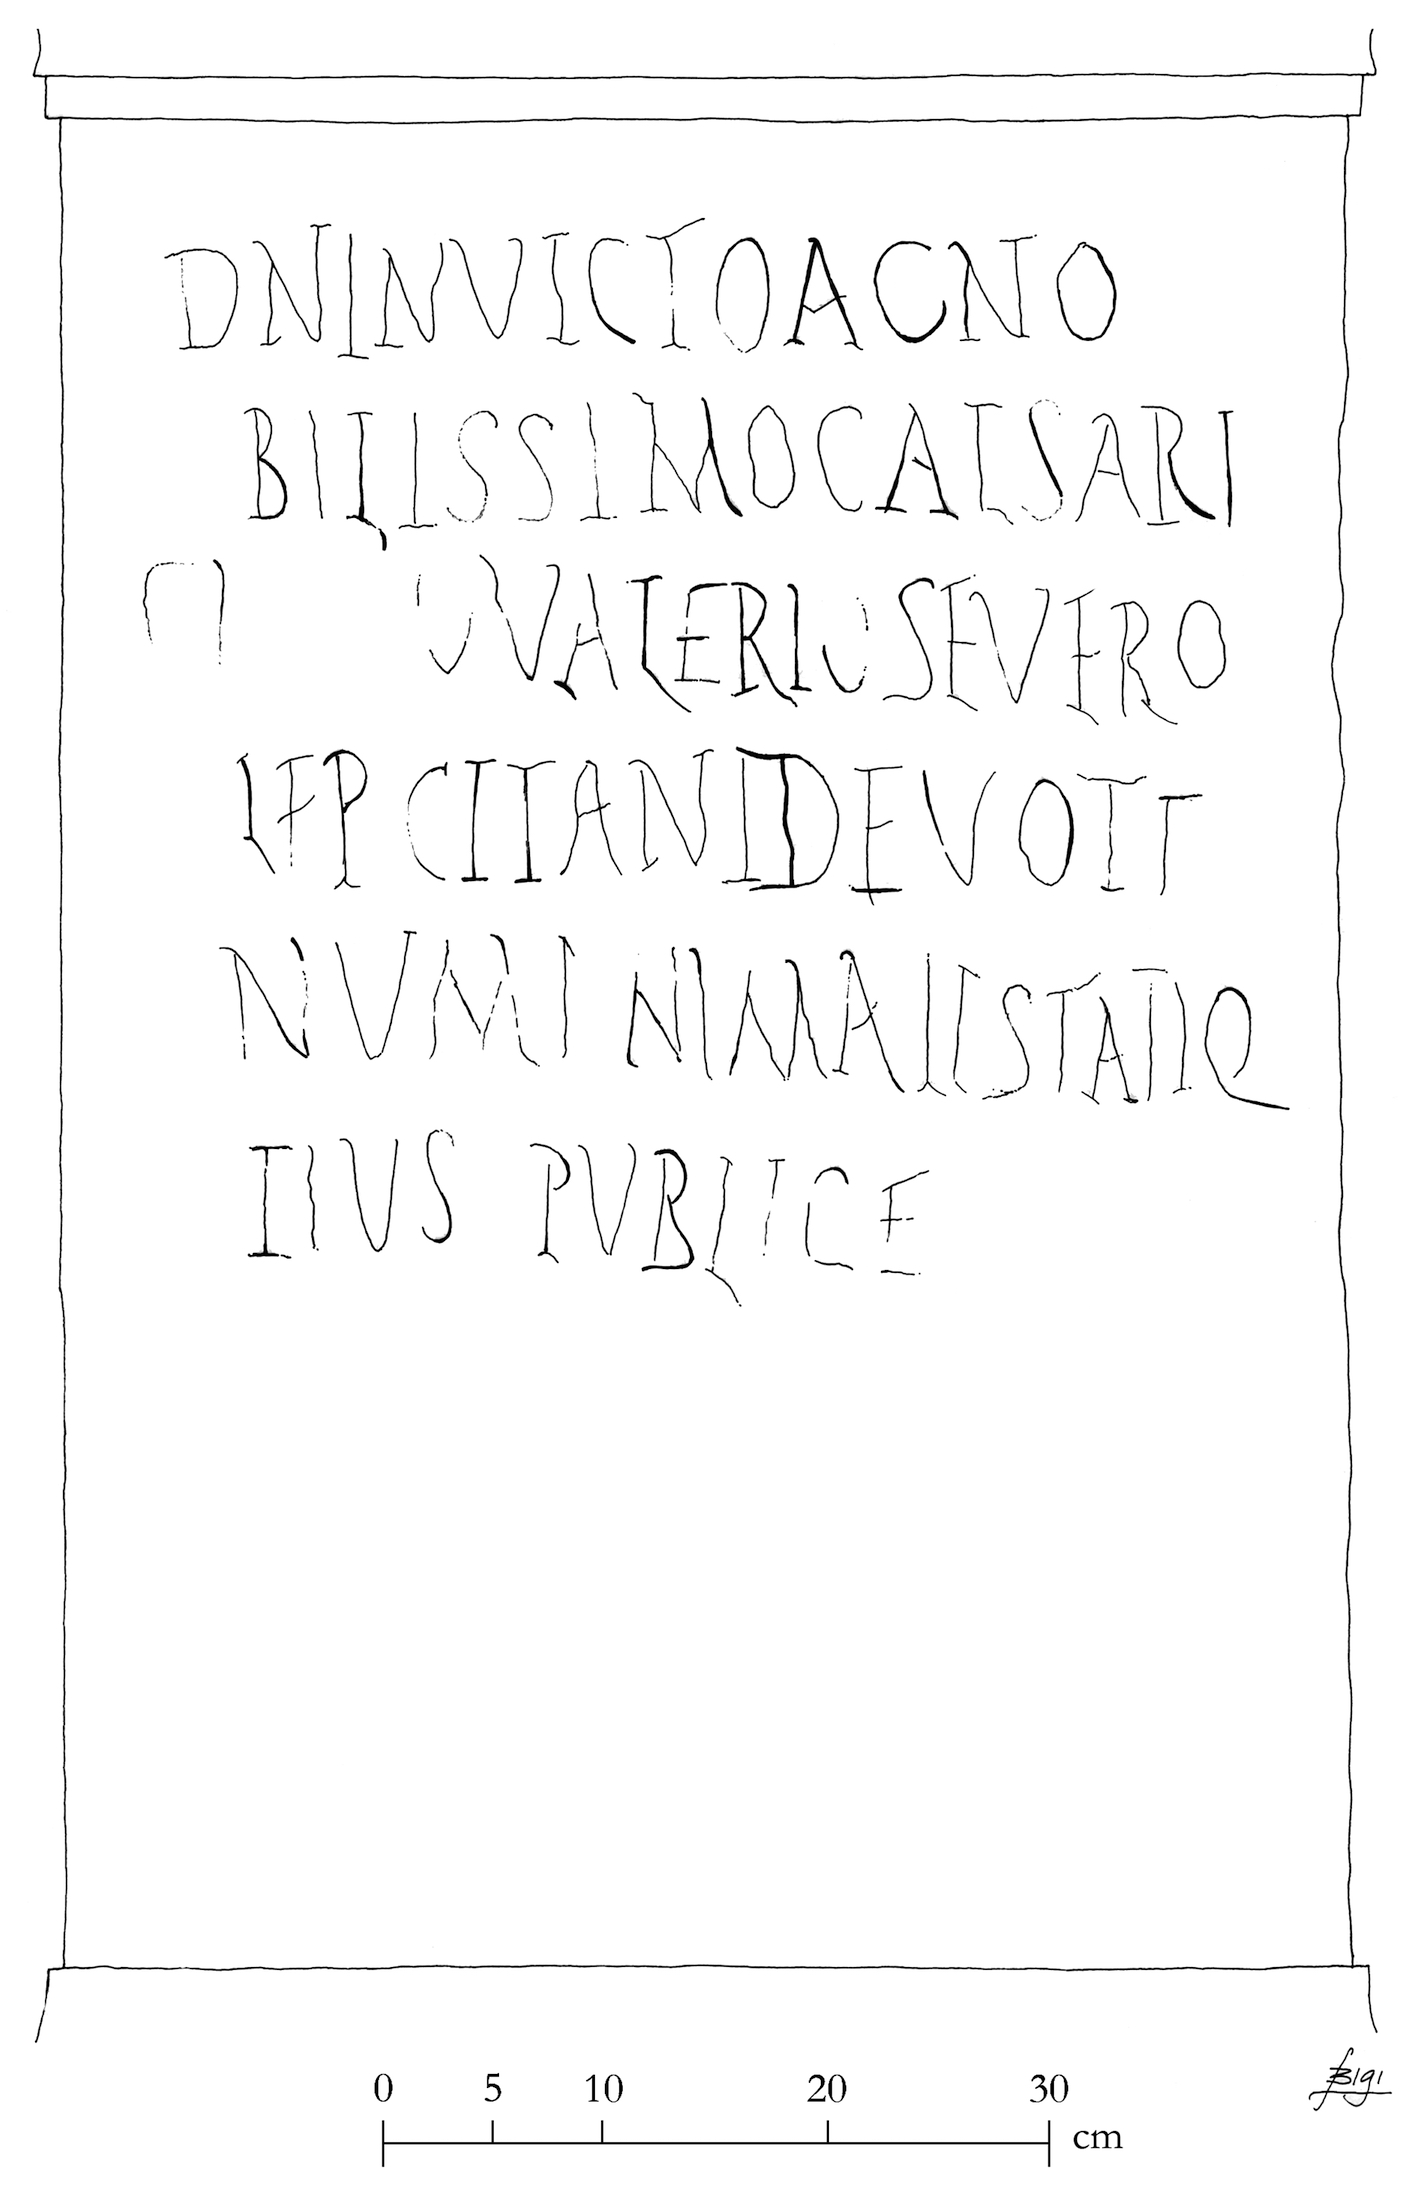 DNINVICTOACNO
BILISSIMOCAESARI
VALERIO SEVERO
LFPCITANIDEVOTI
NUMINI MAIESTATIQ
EIUS PUBLICE
0 5 10 20 30
cm
Bigi